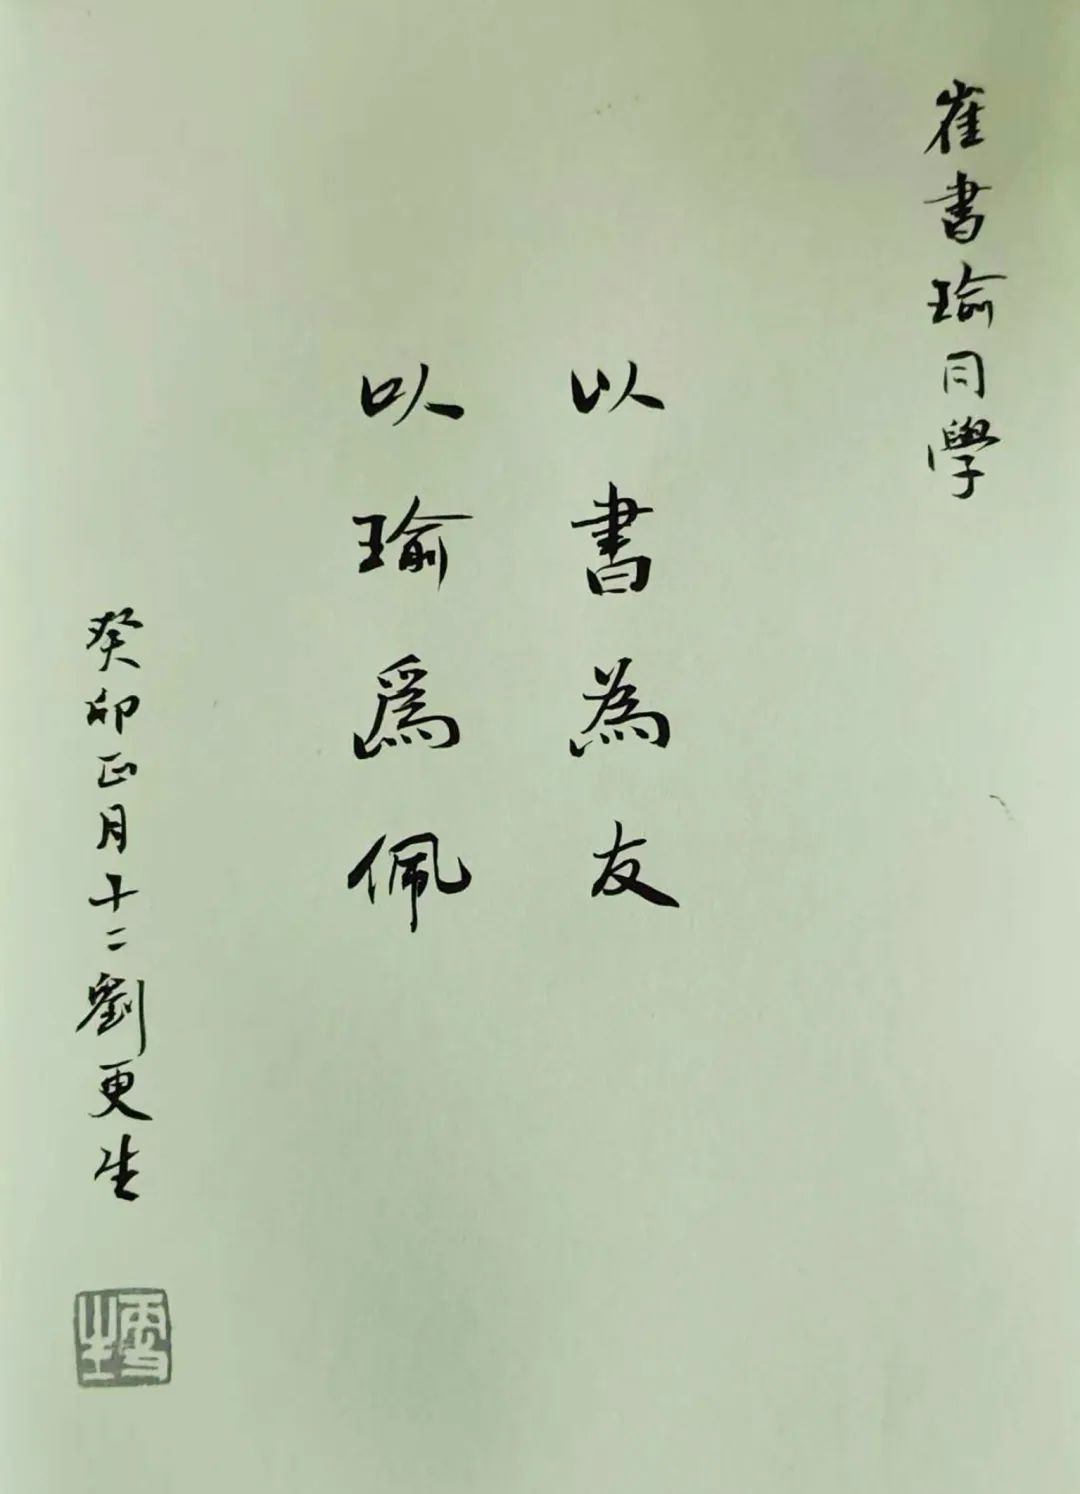 崔書瑜同學
以書為友
以瑜爲佩
癸卯正月十二劉更生